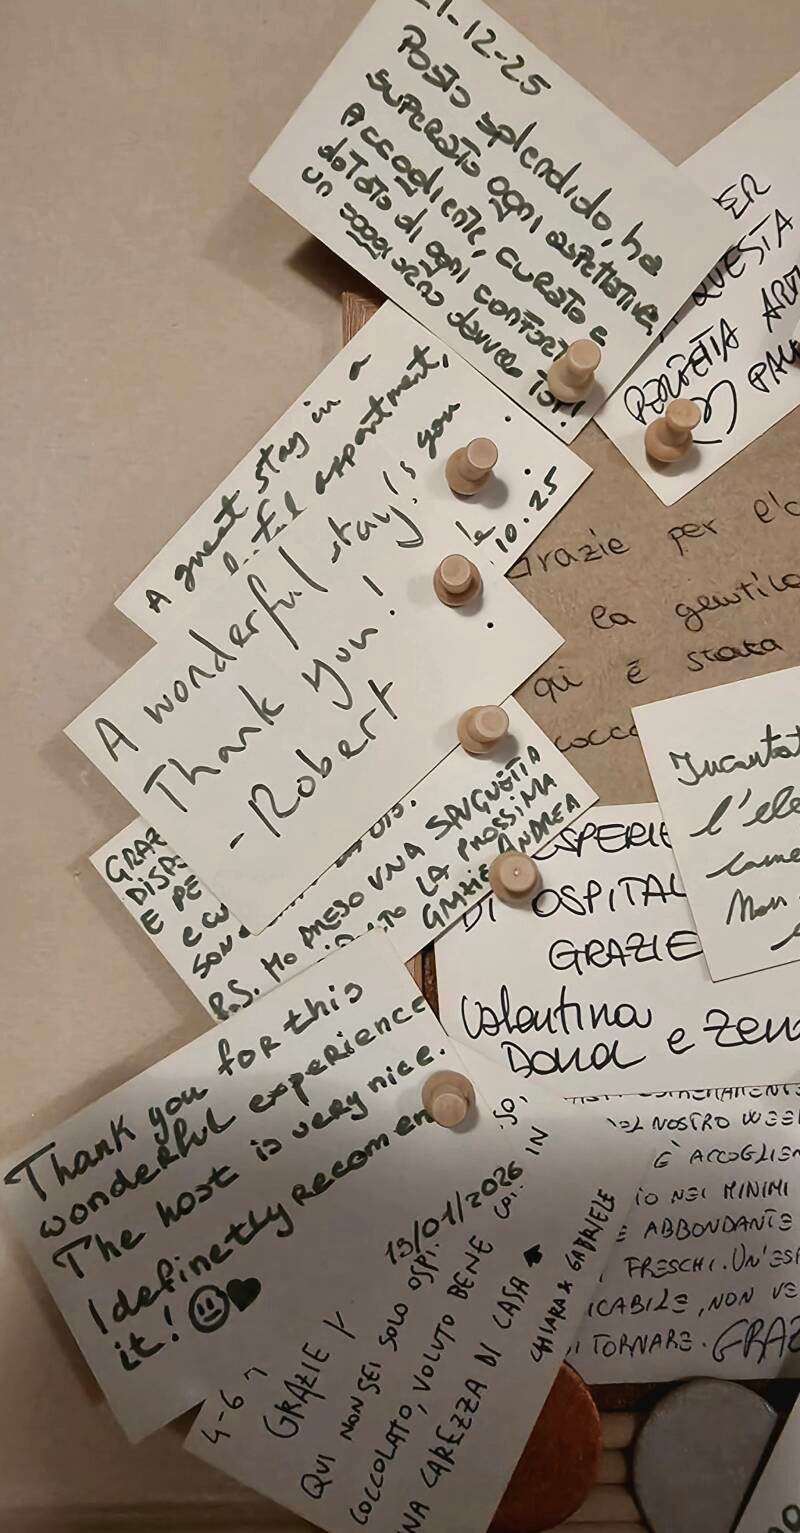 1-12-25
POSTO splendido, ha
SUPERATO OGNI ASPETTATIVA,
ACCOGLIENTE, CURATO E
DOTATO di ogni CONFORT
UN SOGGIORNO davvero TOP!
ER
QUESTA
PERFETTA
A great stay in a
appartment,
you
10.25
A wonderful stay!
Thank you!
-Robert
Grazie per l'
la gentil
qui è stata
cocco
GRAZ
DISP
E PE
e cu
SON
P.S. HO PRESO UNA SAUGUETTA
LA PROSSIMA
GRAZIE ANDREA
l'ele
Non
ESPERIE
DI OSPITAL
GRAZIE
Valentina
Dona e Zeno
Thank you for this
wonderful experience
The host is very nice.
I definetly recomen
it! ☺♥
EL NOSTRO WEE
E' ACCOGLIEN
IO NEI MINIMI
E ABBONDANTE
FRESCHI. UN'ESP
ICABILE, NON VE
DI TORNARE. GRAZ
4-6
13/01/2026
GRAZIE
QUI NON SEI SOLO OSPI
COCCOLATO, VOLUTO BENE
IN
NA CAREZZA DI CASA
CHIARA & GABRIELE